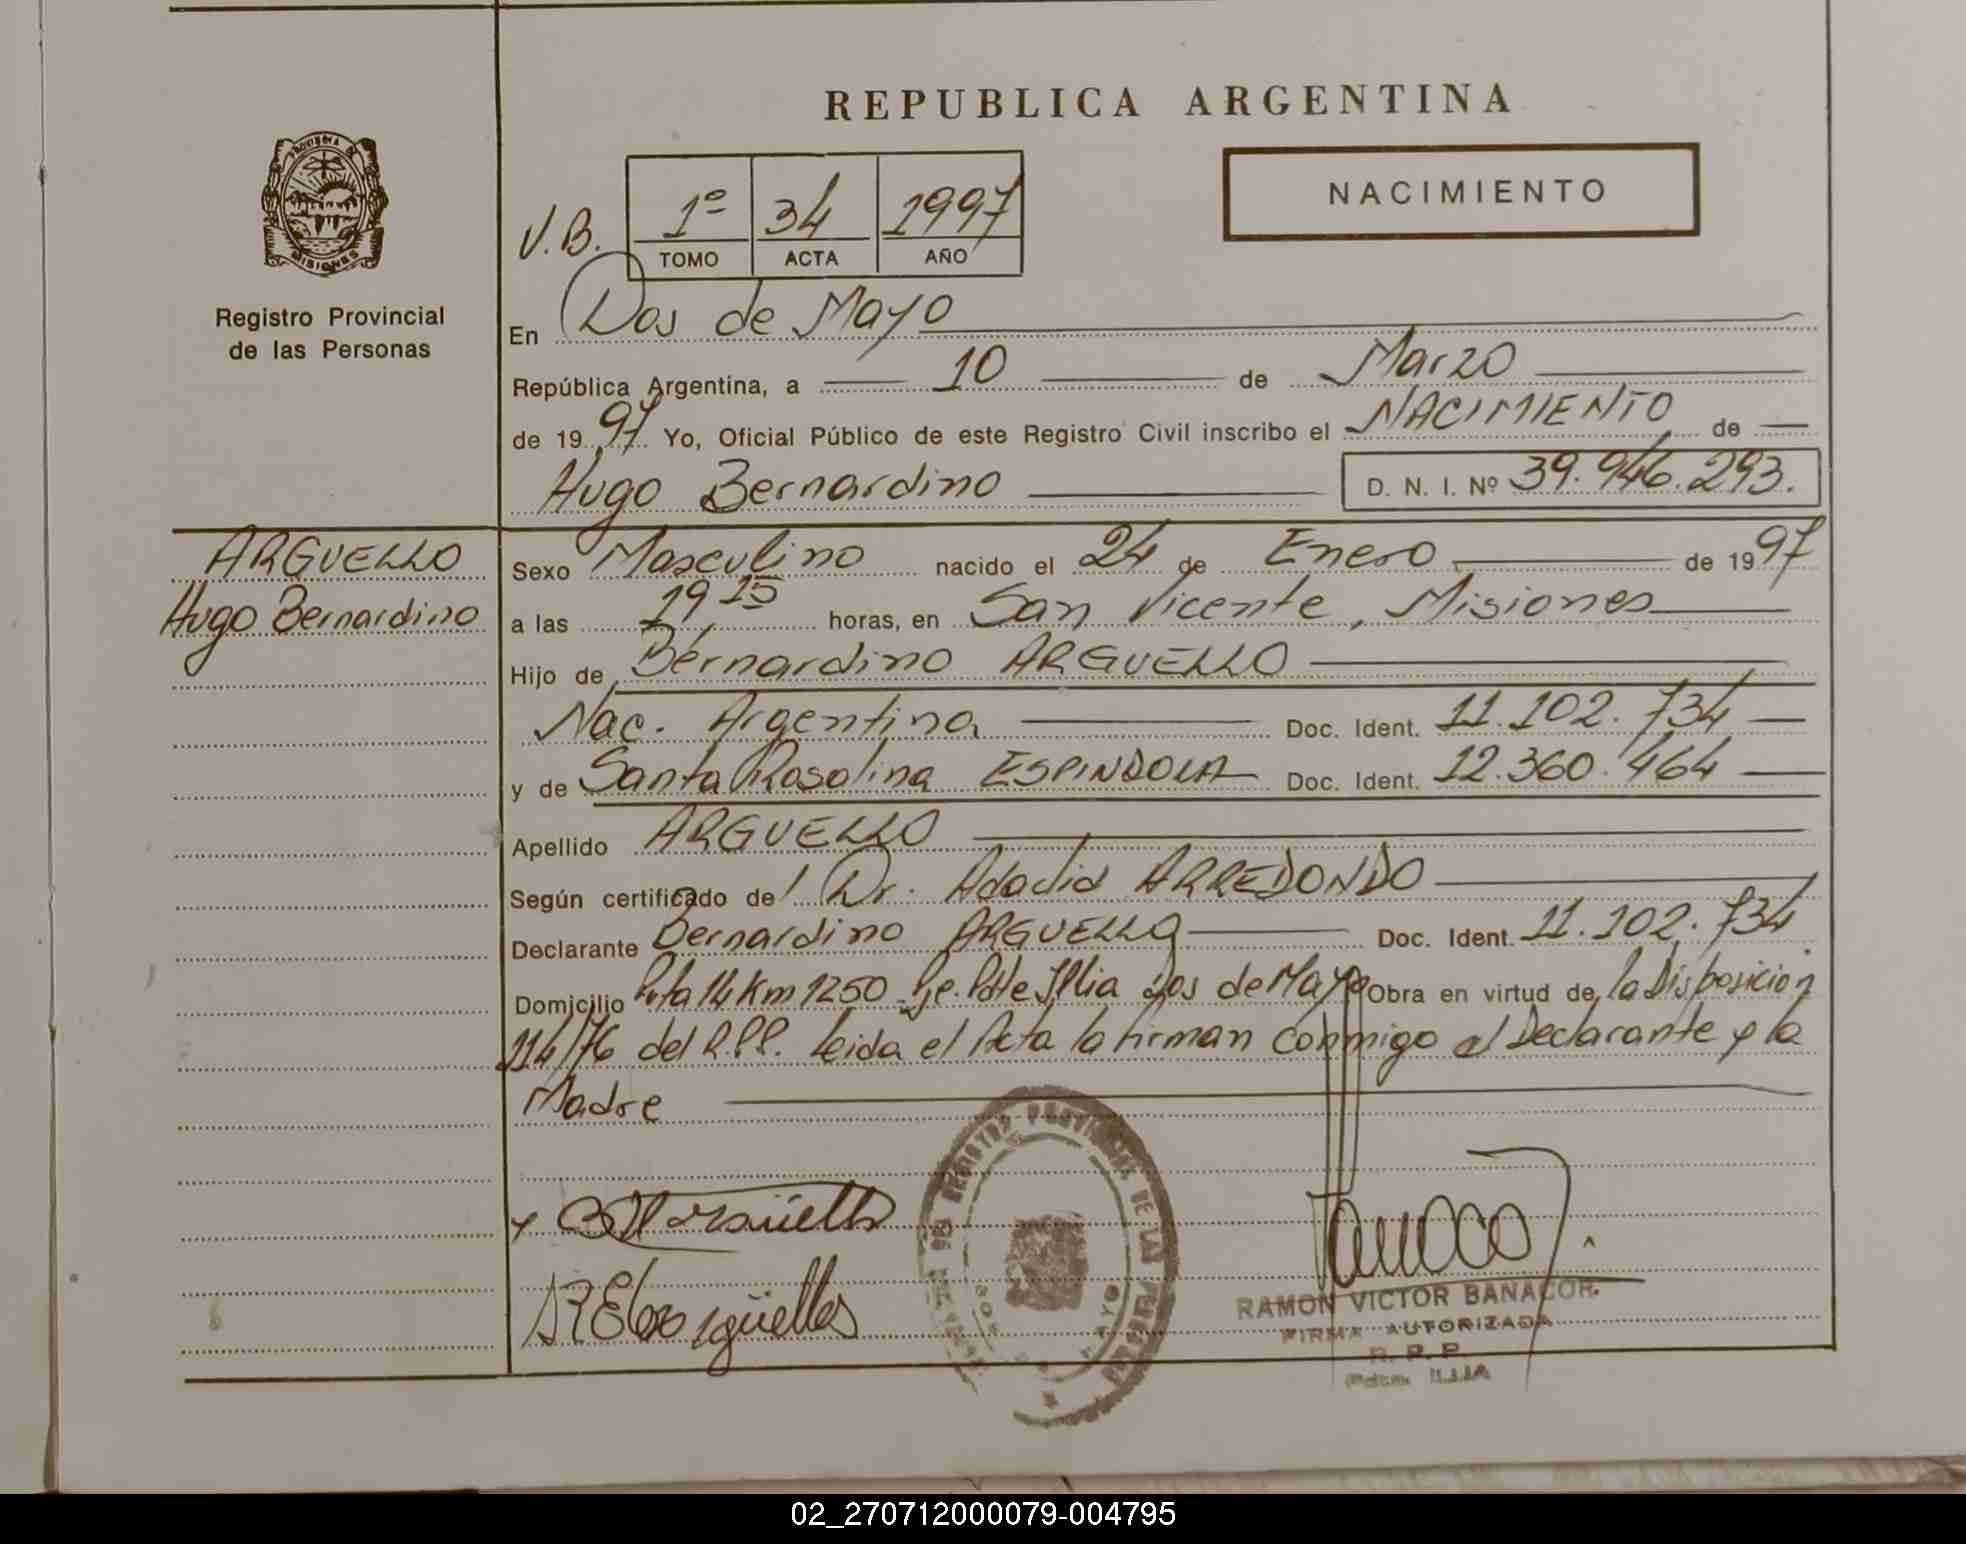 REPUBLICA ARGENTINA
NACIMIENTO
PROVINCIA DE
MISIONES
Registro Provincial
de las Personas
V.B. 1º 34 1997
TOMO ACTA AÑO
En Dos de Mayo
República Argentina, a 10 de Marzo
de 1997 Yo, Oficial Público de este Registro Civil inscribo el NACIMIENTO de
Hugo Bernardino D. N. I. Nº 39.946.293.
ARGUELLO
Hugo Bernardino
Sexo Masculino nacido el 24 de Enero de 1997
a las 19 15 horas, en San Vicente, Misiones
Hijo de Bernardino ARGUELLO
Nac. Argentina Doc. Ident. 11.102.734
y de Santa Rosalina ESPINDOLA Doc. Ident. 12.360.464
Apellido ARGUELLO
Según certificado del Dr. ARREDONDO
Declarante Bernardino ARGUELLO Doc. Ident. 11.102.734
Domicilio Ruta 14 Km 1250 Pte Illia Dos de Mayo Obra en virtud de la Disposicion
114/76 del R.P.P. Leida el Acta la firman conmigo el Declarante y la
Madre
REGISTRO PROVINCIAL DE LAS PERSONAS
RAMON VICTOR BANACOR
FIRMA AUTORIZADA
R. P. P.
ILLIA
02_270712000079-004795